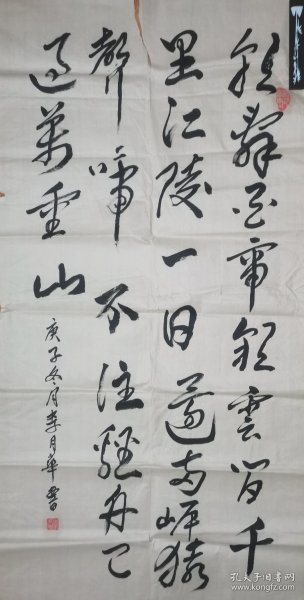 朝辭白帝彩雲間千
里江陵一日還両岸猿
聲啼不住輕舟已
過萬重山
庚子冬月李月華書
孔夫子旧书网
www.kongfz.com